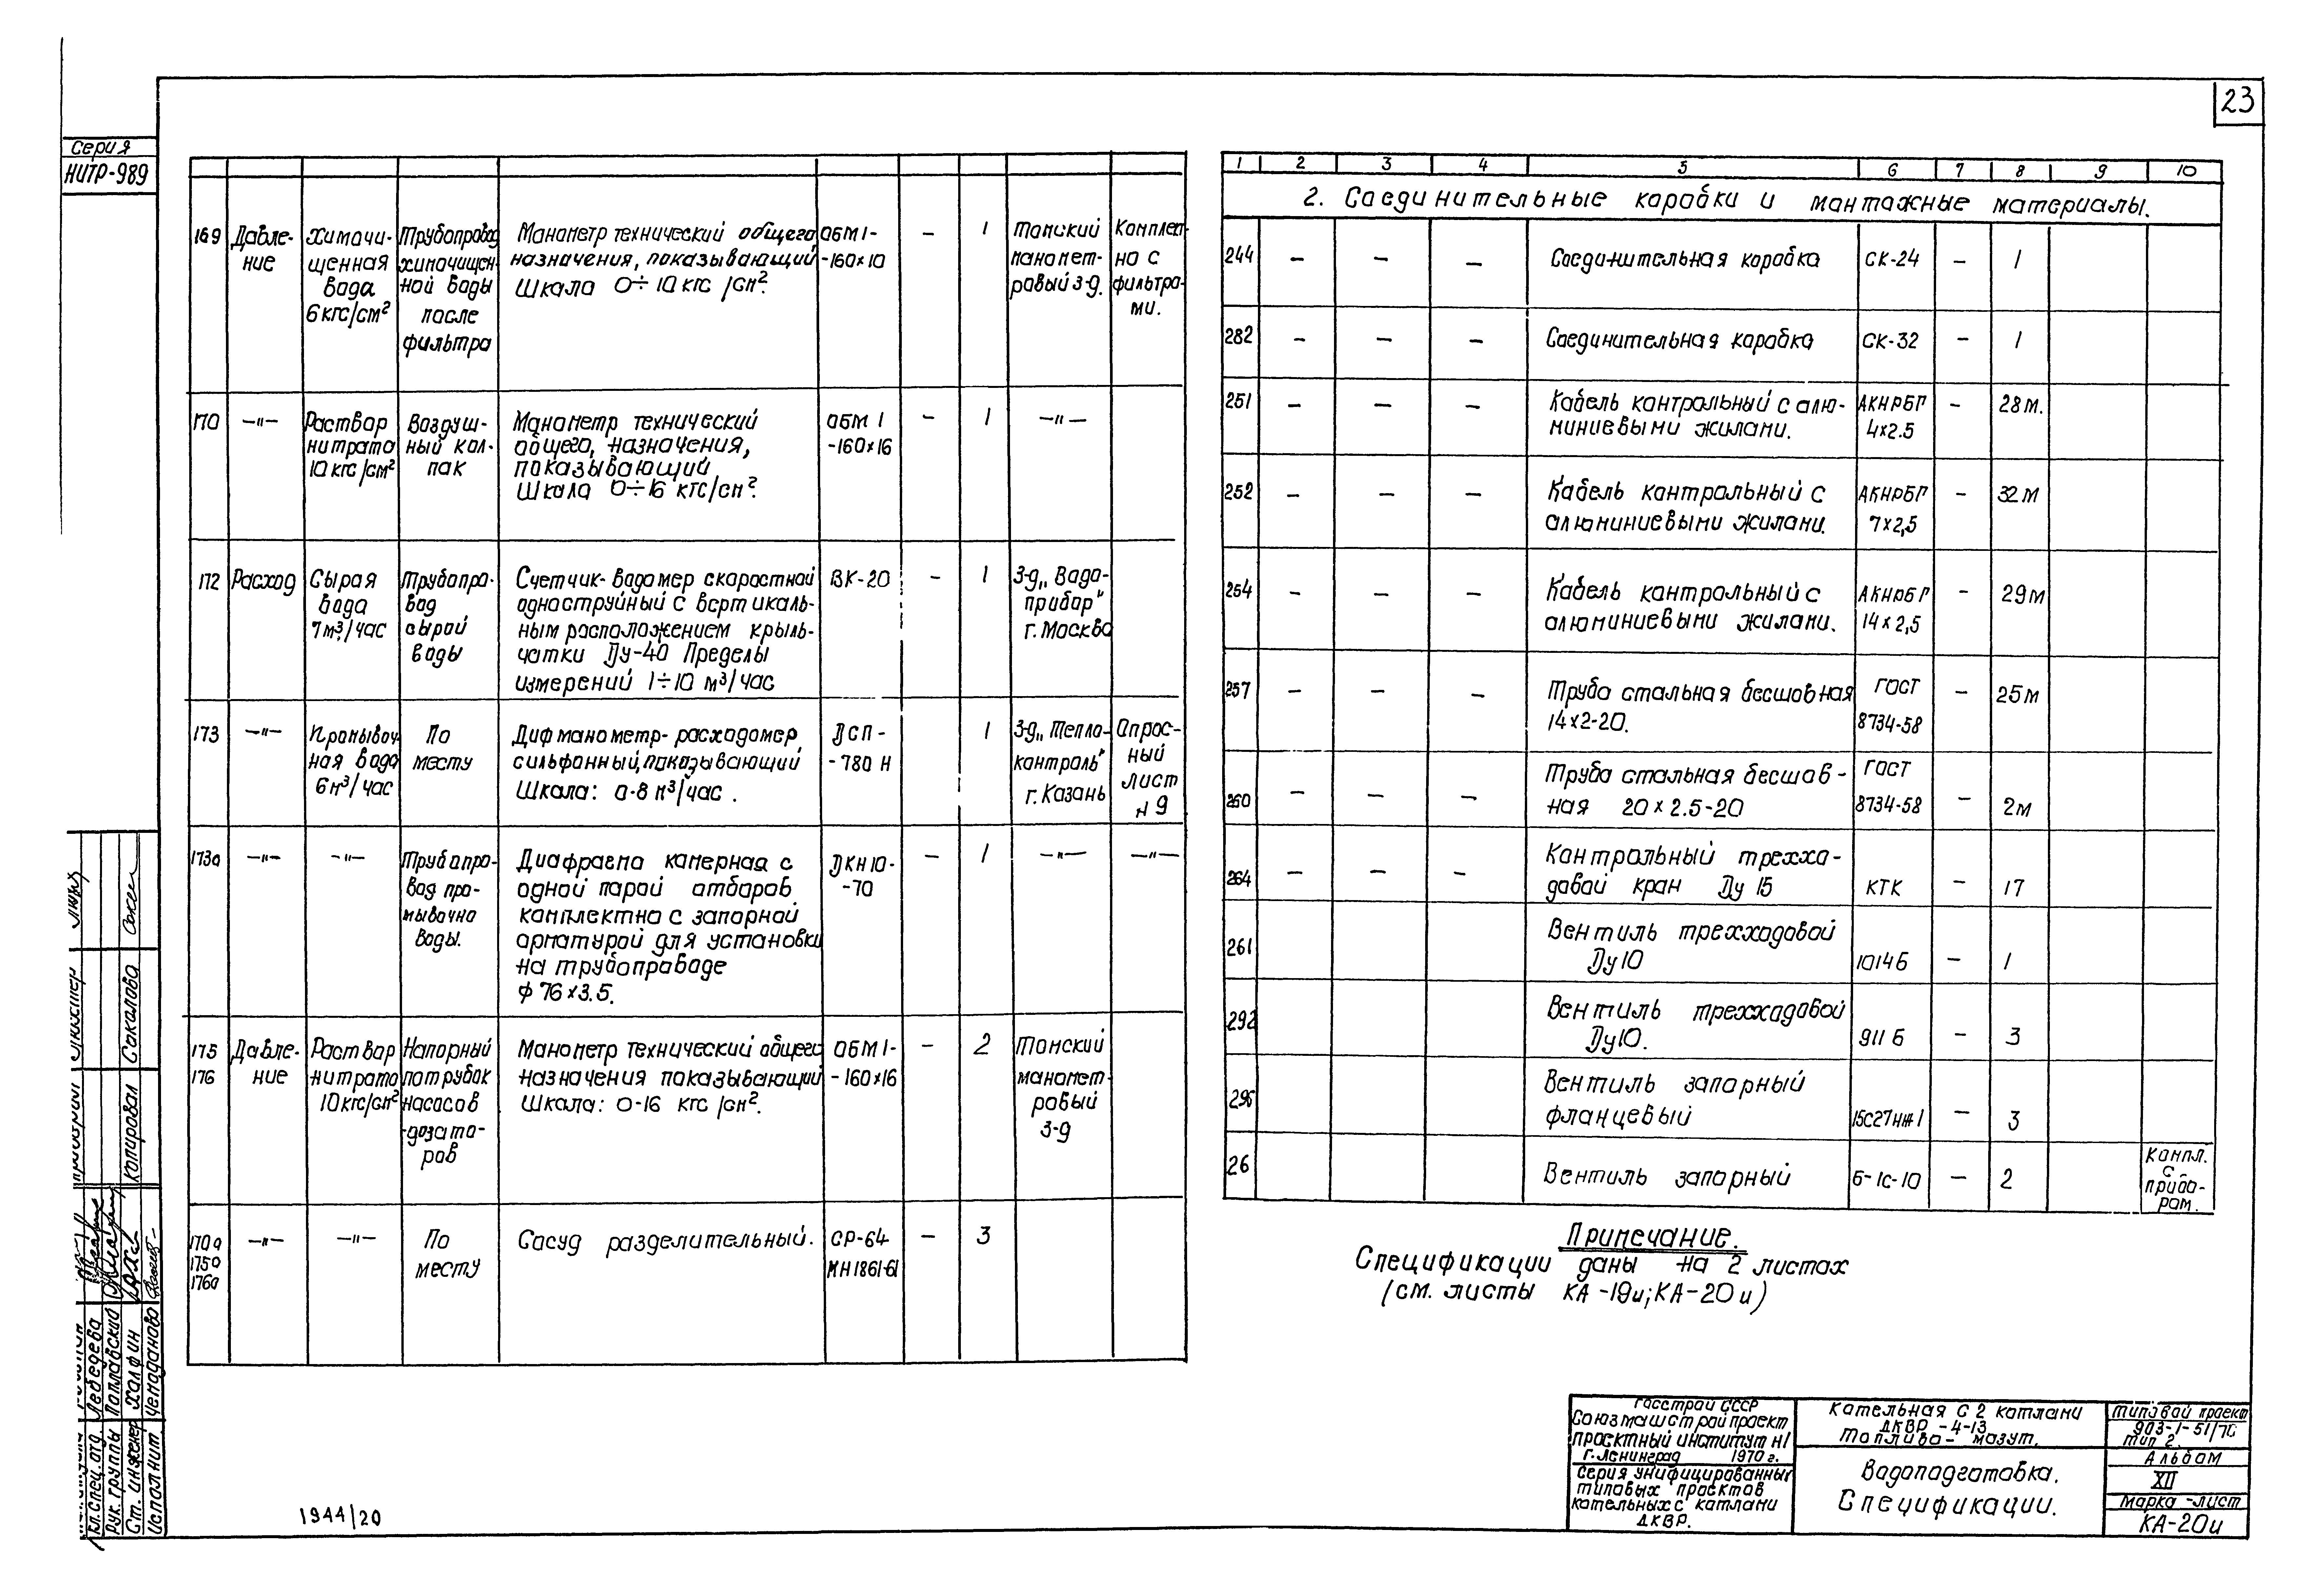 23
Серия
НИТР-989
169 Давле-ние Химочи-щенная вода 6 кгс/см² Трубопровод химочищен-ной воды после фильтра Манометр технический общего назначения, показывающий Шкала 0÷10 кгс/см². ОБМ1-160×10 – 1 Томский манометровый з-д. Комплектно с фильтрами.
170 –"– Раствор нитрата 10 кгс/см² Воздуш-ный кол-пак Манометр технический общего, назначения, показывающий Шкала 0÷16 кгс/см². ОБМ 1 -160×16 – 1 –"–
172 Расход Сырая вода 7 м³/час Трубопро-вод сырой воды Счетчик-водомер скоростной одноструйный с вертикаль-ным расположением крыль-чатки Ду-40 Пределы измерений 1÷10 м³/час ВК-20 – 1 З-д „Водо-прибор" г. Москва
173 –"– Промывоч-ная вода 6 м³/час По месту Дифманометр-расходомер, сильфонный, показывающий Шкала: 0-8 м³/час. ДСП-780 Н 1 З-д „Тепло-контроль" г. Казань Опрос-ный лист №9
173а –"– –"– Трубопро-вод про-мывочно воды. Диафрагма камерная с одной парой отборов комплектно с запорной арматурой для установки на трубопроводе ф 76×3.5. ДКН10-70 – 1 –"– –"–
175 176 Давле-ние Раствор нитрата 10 кгс/см² Напорный патрубок насосов -дозато-ров Манометр технический общего назначения показывающий Шкала: 0-16 кгс/см². ОБМ1-160×16 – 2 Томский маномет-ровый з-д
170а 175а 176а –"– –"– По месту Сосуд разделительный. СР-64 МН1861-61 – 3
1 2 3 4 5 6 7 8 9 10
2. Соединительные коробки и монтажные материалы.
244 – – – Соединительная коробка СК-24 – 1
282 – – – Соединительная коробка СК-32 – 1
251 – – – Кабель контрольный с алю-миниевыми жилами. АКНРБГ 4×2.5 – 28 м.
252 – – – Кабель контрольный с алюминиевыми жилами. АКНРБГ 7×2,5 – 32 м
254 – – – Кабель контрольный с алюминиевыми жилами. АКНРБГ 14×2,5 – 29 м
257 – – – Труба стальная бесшовная 14×2-20. ГОСТ 8734-58 – 25 м
260 – – – Труба стальная бесшов-ная 20×2.5-20 ГОСТ 8734-58 – 2 м
264 – – – Контрольный треххо-довой кран Ду 15 КТК – 17
261 Вентиль трехходовой Ду10 1014б – 1
292 Вентиль трехходовой Ду10. 911б – 3
296 Вентиль запорный фланцевый 15С27нж1 – 3
26 Вентиль запорный Б-1с-10 – 2 Компл. с прибо-ром.
Примечание.
Спецификации даны на 2 листах
(см. листы КА-19и; КА-20и)
Госстрой СССР
Союзмашстройпроект
проектный институт №1
г. Ленинград 1970 г.
Серия унифицированных
типовых проектов
котельных с котлами
ДКВР.
Котельная с 2 котлами
ДКВР-4-13
Топливо - мазут.
Водоподготовка.
Спецификации.
Типовой проект
903-1-51/70
тип 2.
Альбом
XII
Марка-лист
КА-20и
1944/20
Гл. спец. отд. Лебедева
Рук. группы Поплавский
Ст. инженер Халфин
Исполнит. Чемоданова
Копировал Сокалова